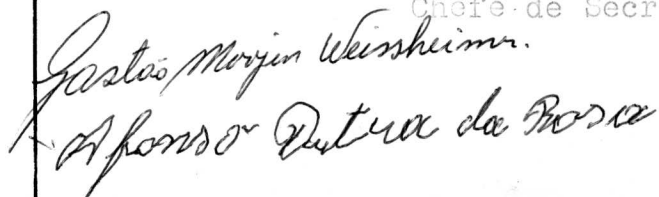 Chefe de Secr
Gastão Moojen Weissheimer.
Afonso Dutra da Rosa